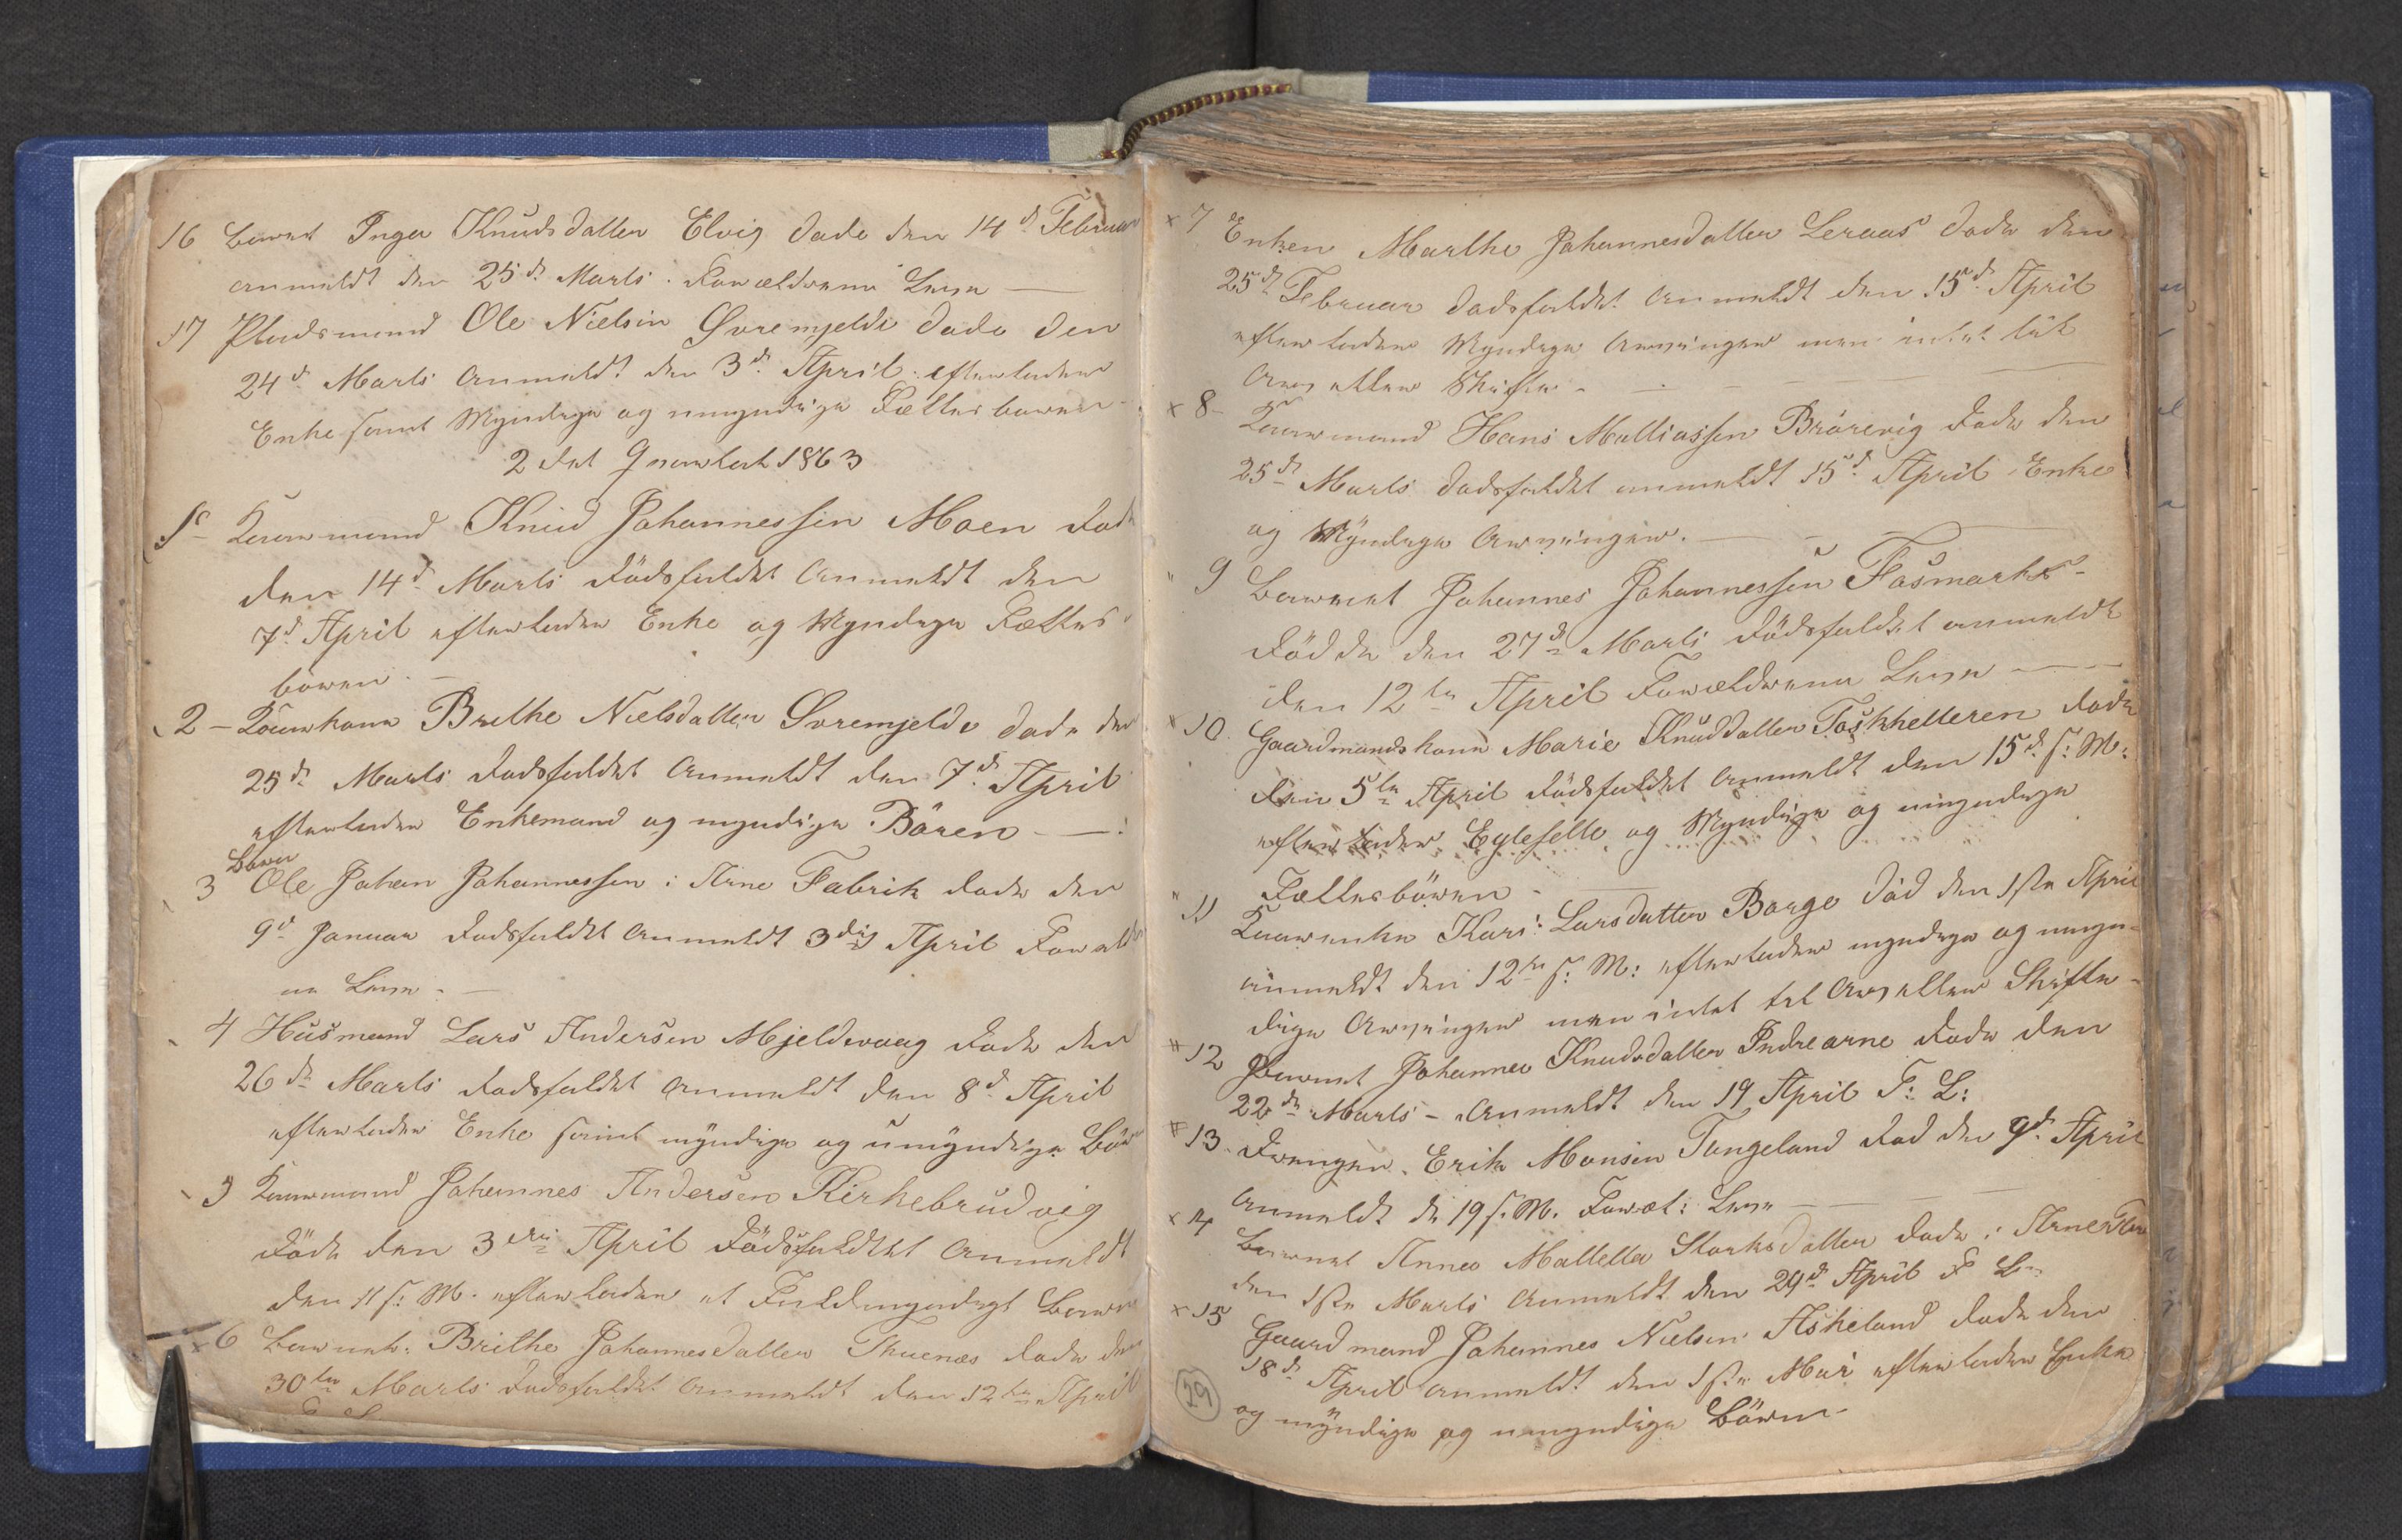 16 Barnet Inger Knudsdatter Elvig Døde den 14d Februar
anmeldt den 25de Marts. Forældrene Leve —
17 Pladsmand Ole Nielsen Svremjelde døde den
24d Marts Anmeldt den 3de April. efterlader
Enke samt Myndige og umyndige Fællesbørn -
2det Qvartal 1863
1e Kaarmand Knud Johannessen Moen død
den 14d Marts Dödsfaldet Anmeldt den
7d April efterlader Enke og Myndige Fælles
börn. —
2 - Kaarkone Brithe Nielsdatter Svremjelde døde den
25de Marts Dødsfaldet Anmeldt den 7d April
efterlader Enkemand og myndige Bören —
Barn
3 Ole Johan Johannessen i Arne Fabrik døde den
9d Januar Dødsfaldet Anmeldt 3die April Foræld
ne Leve. —
4 Husmand Lars Andersen Mjeldevaag døde den
26de Marts Dødsfaldet Anmeldt den 8d April
efterlader Enke samt myndige og umyndige Bör
5 Kaarmand Johannes Andersen Kirkebrudvig
døde den 3die April Dödsfaldet Anmeldt
den 11 s: M. efterlader et Fuldmyndigt Barn
x 6 Barnet: Brithe Johannesdatter Thuenæs døde den
30te Marts Dødsfaldet Anmeldt den 12te April
F L
x 7 Enken Marthe Johannesdatter Leraas døde den
25de Februar dødsfaldet Anmeldt den 15d April
efterlader Myndige Arvinger men intet til
Arv eller Skifte -
x 8 - Kaarmand Hans Mathiassen Brörvig døde den
25de Marts dødsfaldet anmeldt 15d April Enke
og Myndige Arvinger. —
" 9 Barnet Johannes Johannessen Fosmark -
Död de den 27de Marts Dödsfaldet anmeldt
den 12te April Forældrene Leve —
x 10. Gaardmandskone Marie Knudsdatter Toskhelleren døde
den 5te April Dödsfaldet Anmeldt den 15d s: M:
efterlader Egtefelle og Myndige og umyndige
Fællesbörn -
" 11 Kaarenke Kari: Larsdatter Borge död den 1ste April
anmeldt den 12te s: M: efterlader myndige og umyn-
dige Arvinger men intet til Arv eller Skifte -
" 12 Barnet Johanne Knudsdatter Indrearne døde den
22de Marts - Anmeldt den 19 April F: L:
" 13. Drengen. Erik Monsen Tangeland død den 9d April
Anmeldt d 19 s. M. Foræl: Leve —
x 14 Barnet Anne Mallella Starksdatter døde i Arne
den 1ste Marts Anmeldt den 29d April F L
x 15 Gaardmand Johannes Nielsen Askeland døde den
18de April anmeldt den 1ste Mai efterlader Enke
og myndige og umyndige Börn -
39